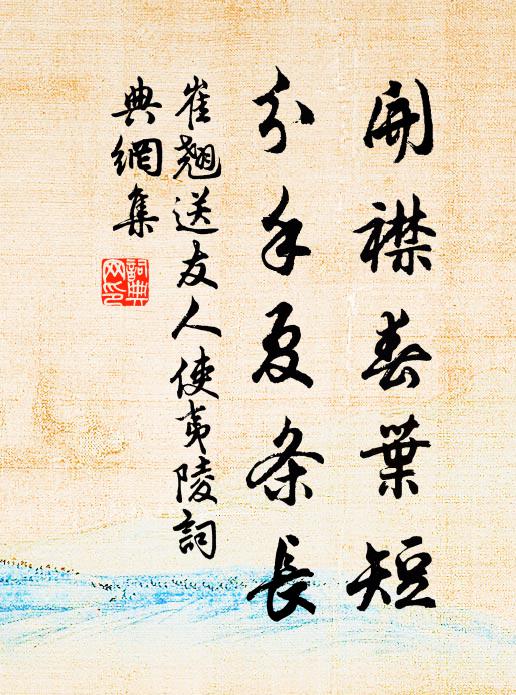 開襟春葉短
分手夏条長
崔翹送友人使夷陵詞
典網集
詞典網印